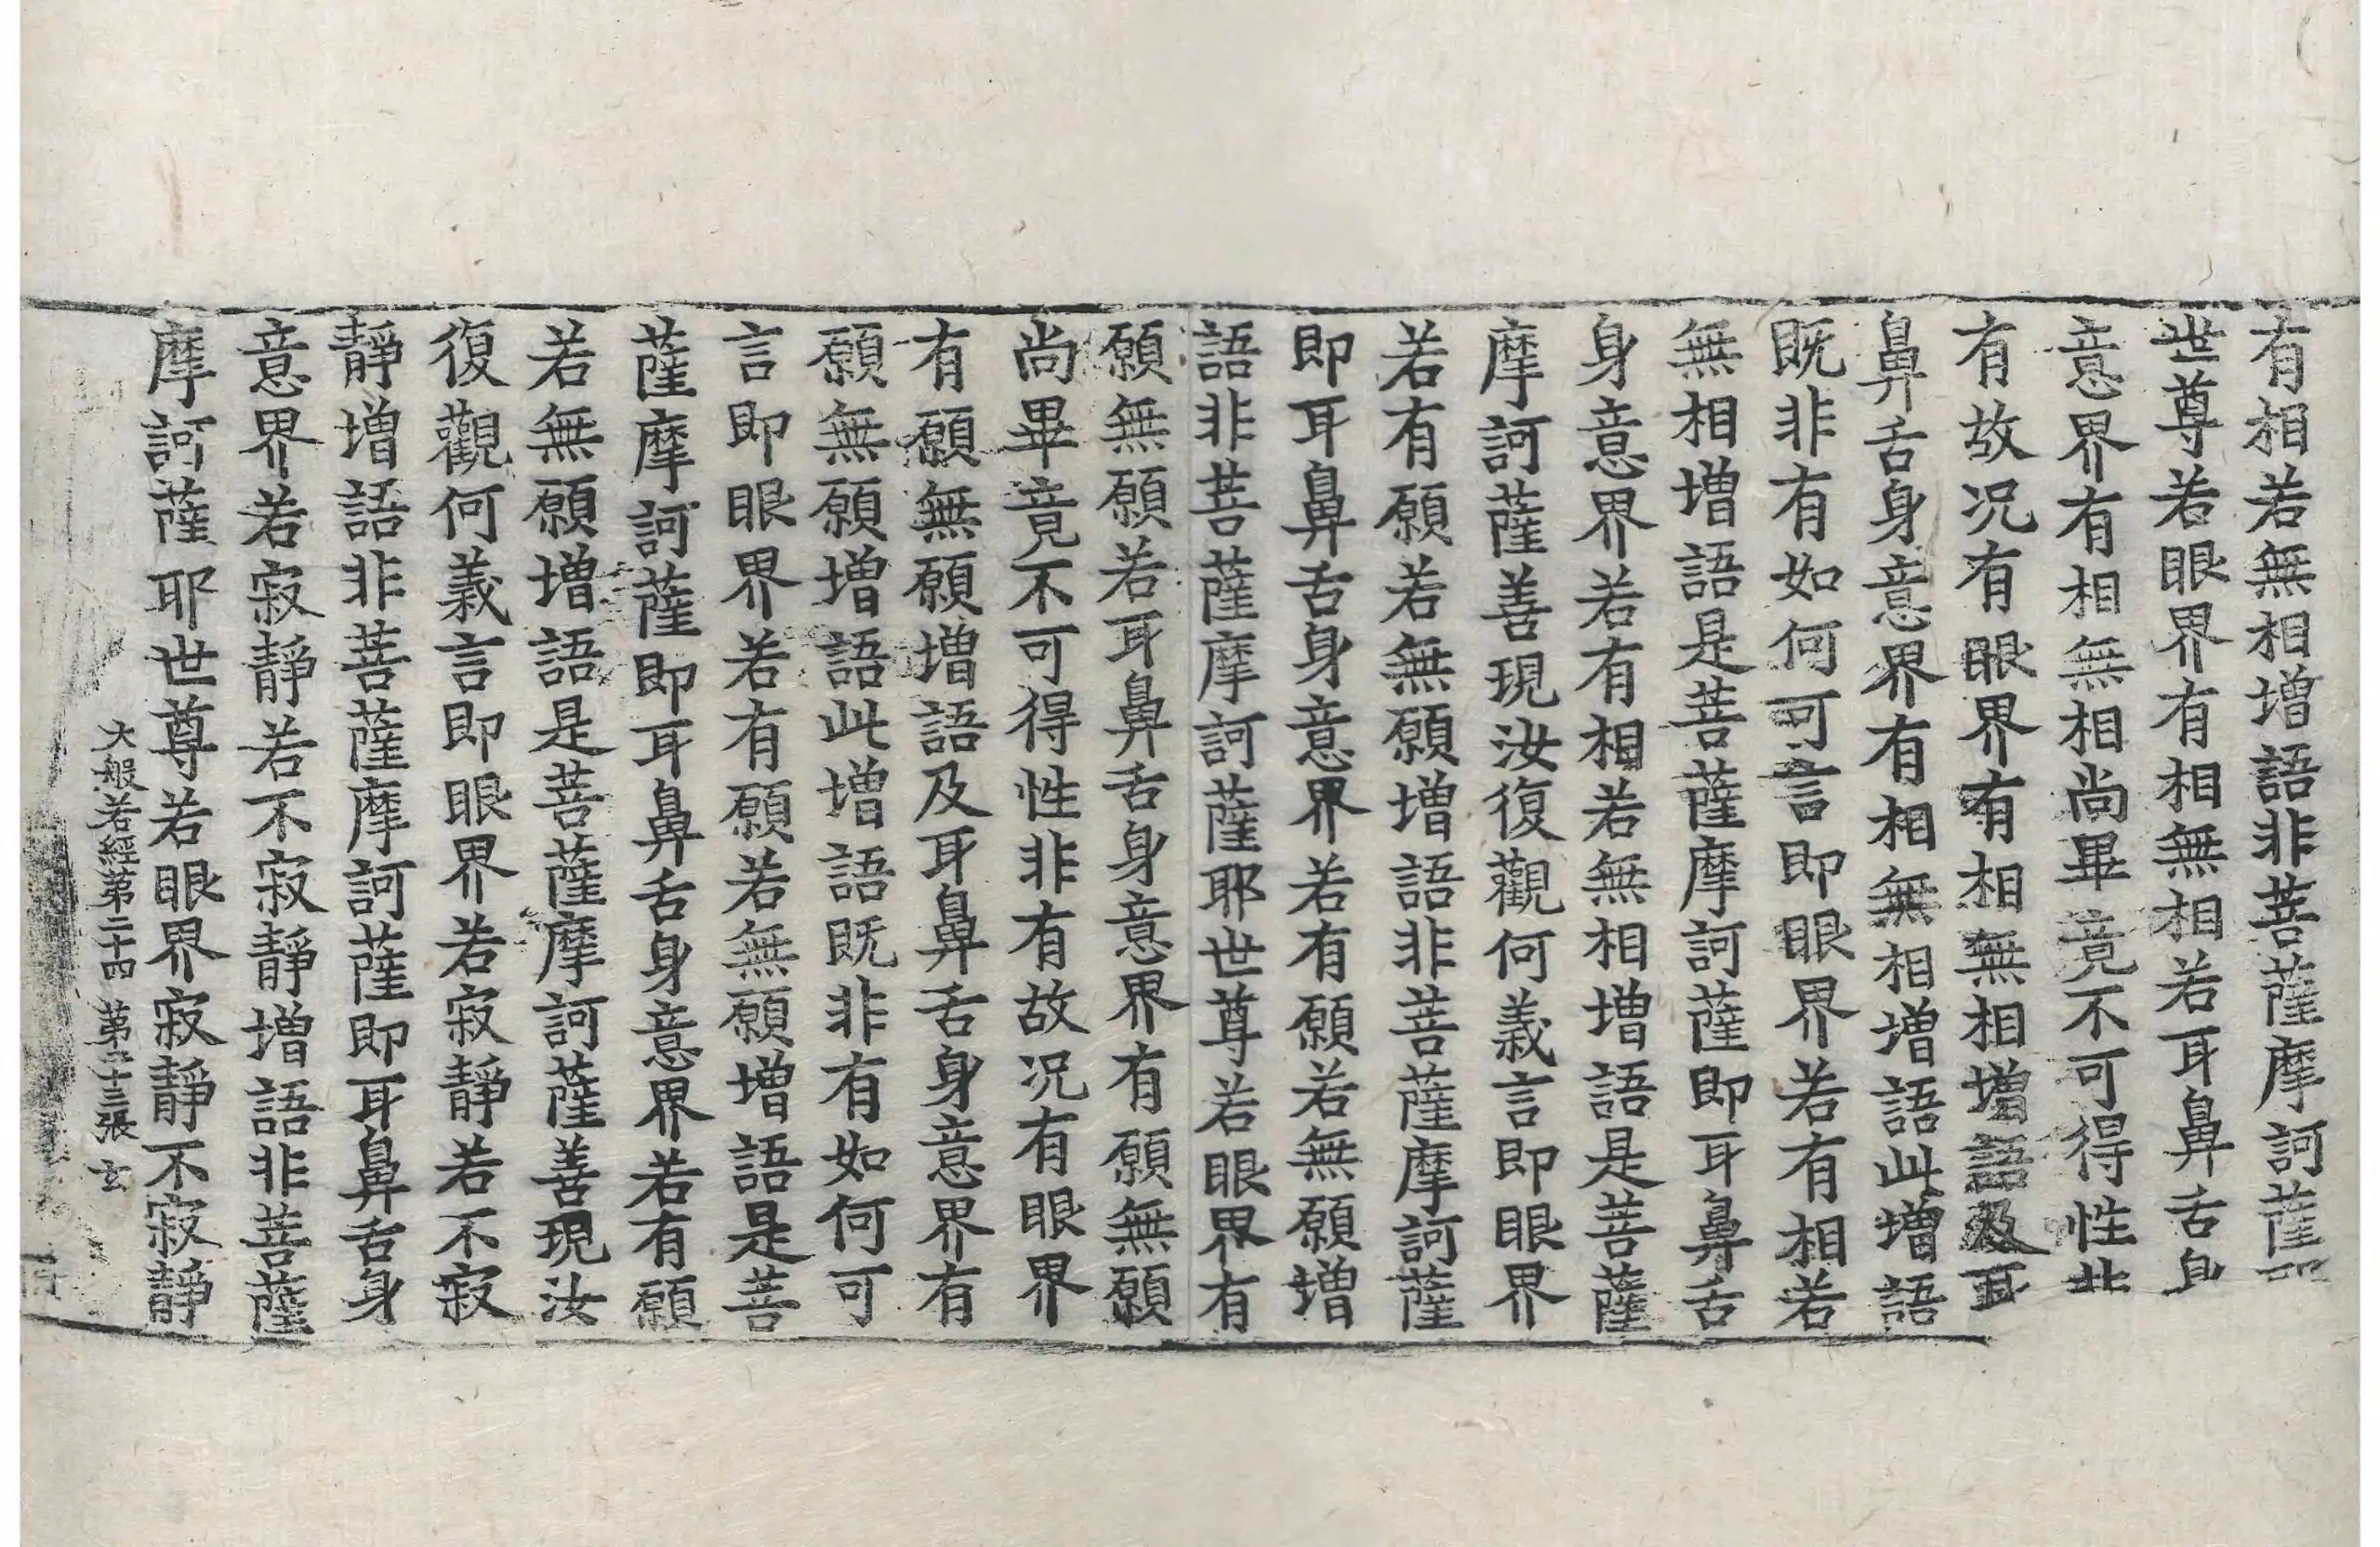 有相若無相增語非菩薩摩訶薩
世尊若眼界有相無相若耳鼻舌身
意界有相無相尚畢竟不可得性非
有故况有眼界有相無相增語及耳
鼻舌身意界有相無相增語此增語
既非有如何可言即眼界若有相若
無相增語是菩薩摩訶薩即耳鼻舌
身意界若有相若無相增語是菩薩
摩訶薩善現汝復觀何義言即眼界
若有願若無願增語非菩薩摩訶薩
即耳鼻舌身意界若有願若無願增
語非菩薩摩訶薩耶世尊若眼界有
願無願若耳鼻舌身意界有願無願
尚畢竟不可得性非有故况有眼界
有願無願增語及耳鼻舌身意界有
願無願增語此增語既非有如何可
言即眼界若有願若無願增語是菩
薩摩訶薩即耳鼻舌身意界若有願
若無願增語是菩薩摩訶薩善現汝
復觀何義言即眼界若寂靜若不寂
靜增語非菩薩摩訶薩即耳鼻舌身
意界若寂靜若不寂靜增語非菩薩
摩訶薩耶世尊若眼界寂靜不寂靜
大般若經第二十四 第二十三張 玄